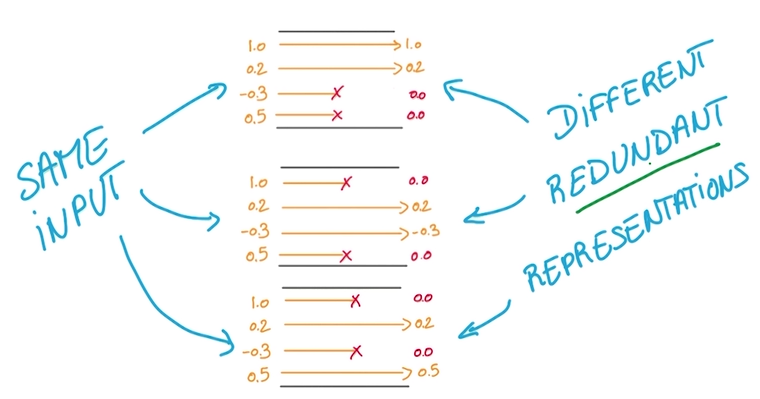 SAME
INPUT
1.0 1.0
0.2 0.2
-0.3 0.0
0.5 0.0
1.0 0.0
0.2 0.2
-0.3 -0.3
0.5 0.0
1.0 0.0
0.2 0.2
-0.3 0.0
0.5 0.5
DIFFERENT
REDUNDANT
REPRESENTATIONS